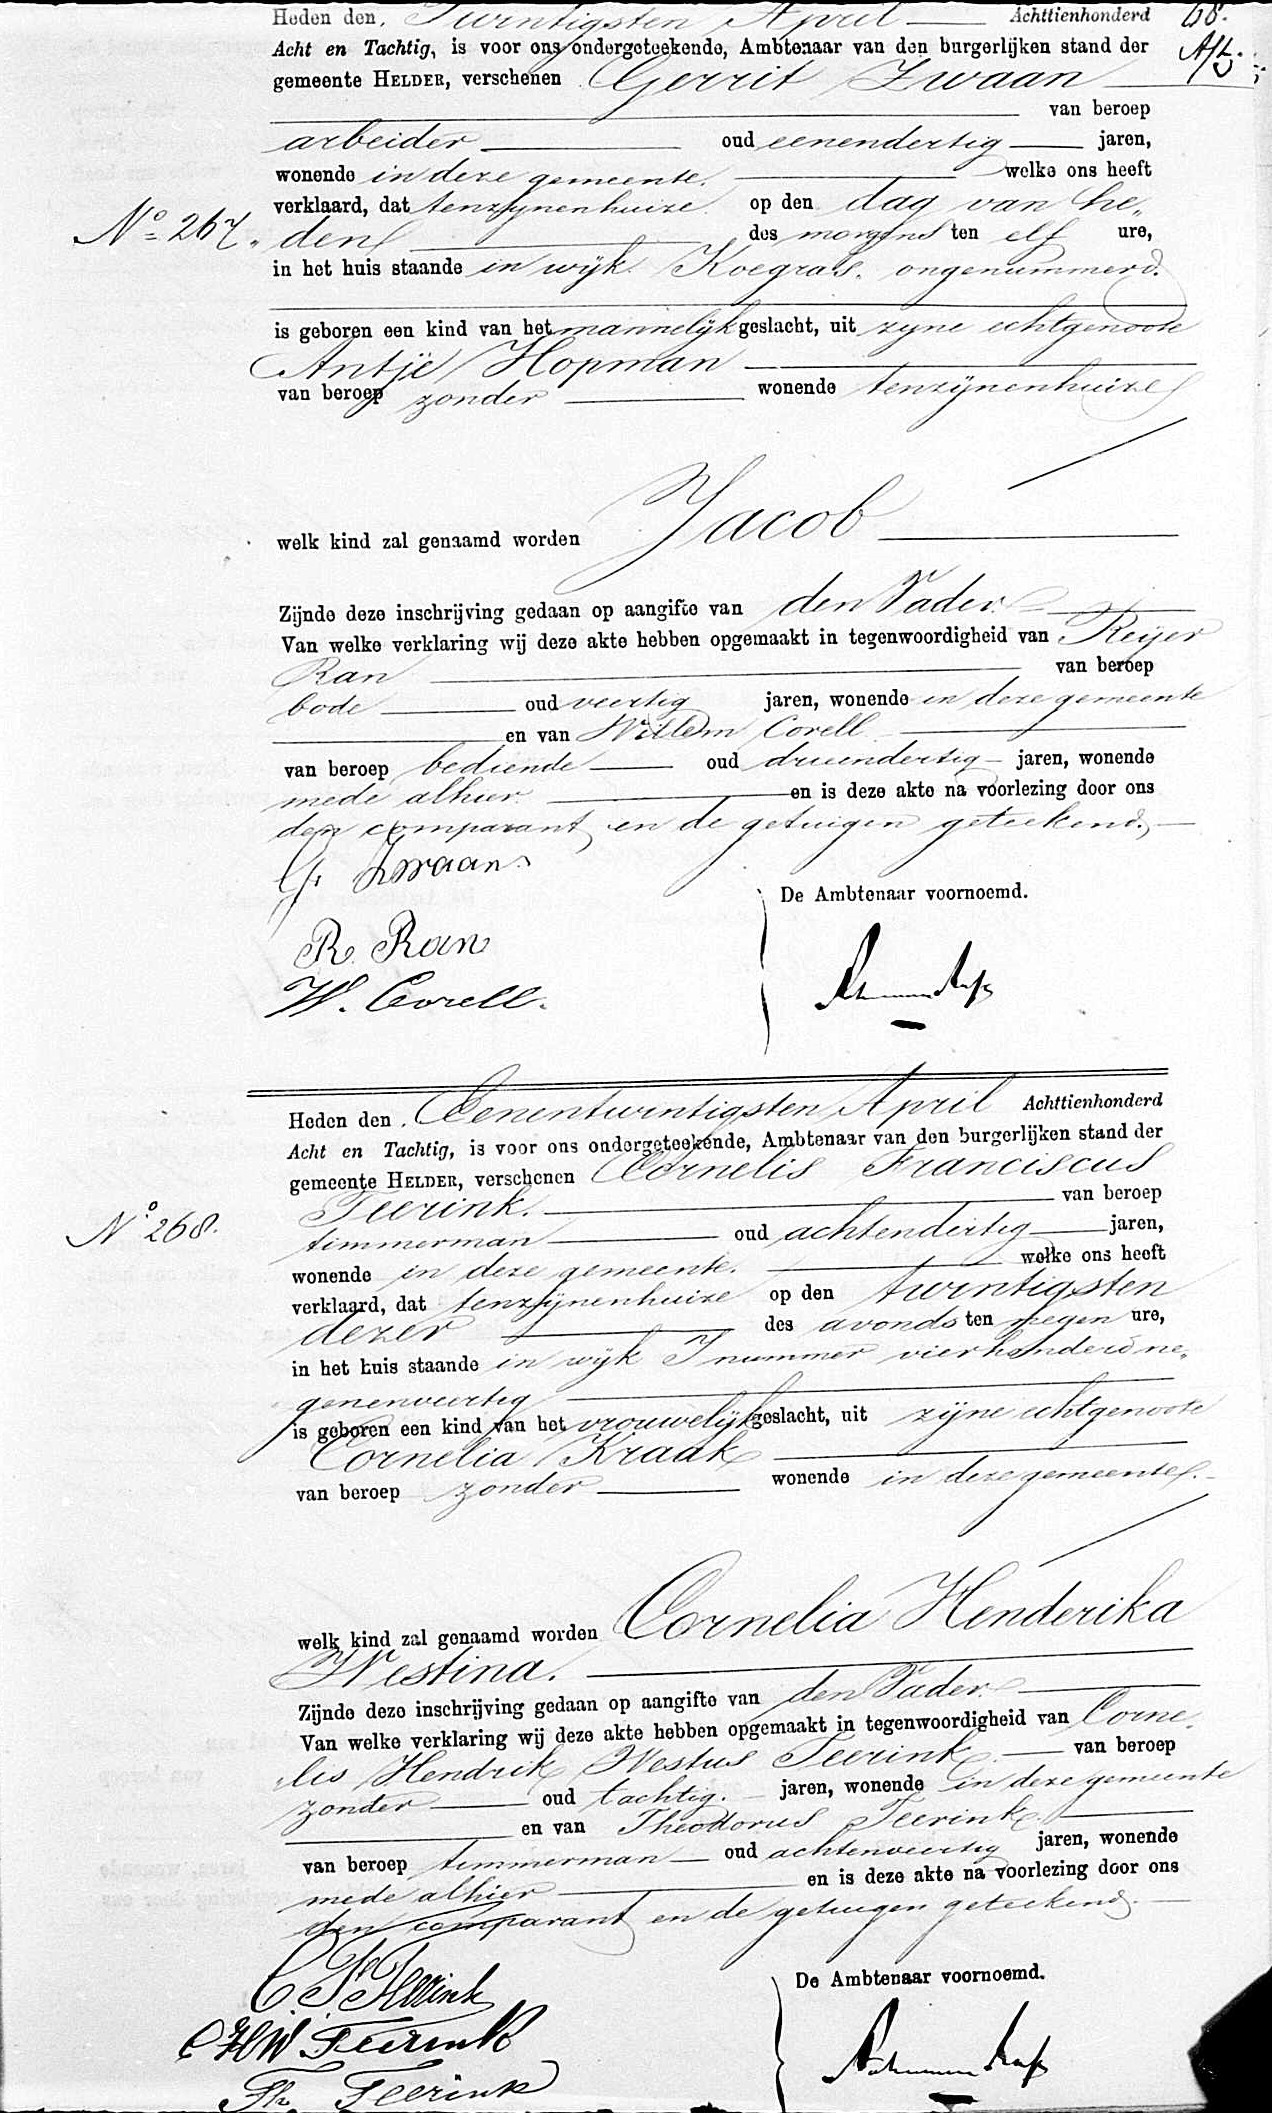 Heden den, Twintigsten April Achttienhonderd 68.
Acht en Tachtig, is voor ons ondergeteekende, Ambtenaar van den burgerlijken stand der
gemeente HELDER, verschenen Gerrit Zwaan
van beroep
arbeider oud eenendertig jaren,
wonende in deze gemeente. welke ons heeft
verklaard, dat tenzijnenhuize op den dag van he„
No 267. den des morgens ten elf ure,
in het huis staande in wijk Koegras, ongenummerd.
is geboren een kind van het mannelijk geslacht, uit zijne echtgenoote
Antje Hopman
van beroep zonder wonende tenzijnenhuize
welk kind zal genaamd worden Jacob
Zijnde deze inschrijving gedaan op aangifte van den Vader.
Van welke verklaring wij deze akte hebben opgemaakt in tegenwoordigheid van Reijer
Ran van beroep
bode oud veertig jaren, wonende in deze gemeente
en van Willem Corell
van beroep bediende oud drieendertig jaren, wonende
mede alhier. en is deze akte na voorlezing door ons
den comparant en de getuigen geteekend.
G. Zwaan.
De Ambtenaar voornoemd.
R. Ran
W. Corell.
Heden den Eenentwintigsten April Achttienhonderd
Acht en Tachtig, is voor ons ondergeteekende, Ambtenaar van den burgerlijken stand der
gemeente HELDER, verschenen Cornelis Franciscus
Teerink. van beroep
No 268. timmerman oud achtendertig jaren,
wonende in deze gemeente. welke ons heeft
verklaard, dat tenzijnenhuize op den twintigsten
dezer des avonds ten negen ure,
in het huis staande in wijk I nummer vierhonderd ne„
genenveertig
is geboren een kind van het vrouwelijk geslacht, uit zijne echtgenoote
Cornelia Kraak
van beroep zonder wonende in deze gemeente.
welk kind zal genaamd worden Cornelia Henderika
Westina.
Zijnde deze inschrijving gedaan op aangifte van den Vader.
Van welke verklaring wij deze akte hebben opgemaakt in tegenwoordigheid van Corne„
lis Hendrik Westus Teerink van beroep
zonder oud tachtig. jaren, wonende in deze gemeente
en van Theodorus Teerink
van beroep timmerman oud achtenveertig jaren, wonende
mede alhier en is deze akte na voorlezing door ons
den comparant en de getuigen geteekend.
C. F. Teerink
De Ambtenaar voornoemd.
CHW Teerink
Th. Teerink